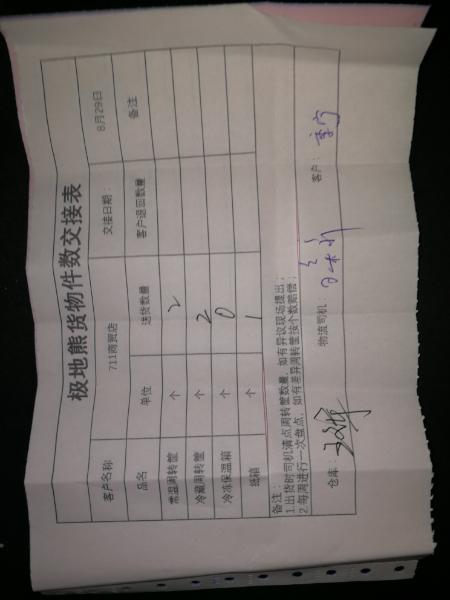 极地熊货物件数交接表
客户名称 711商贸店 交接日期： 8月29日
品名 单位 送货数量 客户退回数量 备注
常温周转筐 个 2
冷藏周转筐 个 2
冷冻保温箱 个 0
纸箱 个 1
备注：
1.出货时司机清点周转筐数量，如有异议现场提出；
2.每周进行一次盘点，如有差异周转筐按个数赔偿；
仓库： 物流司机： 客户：